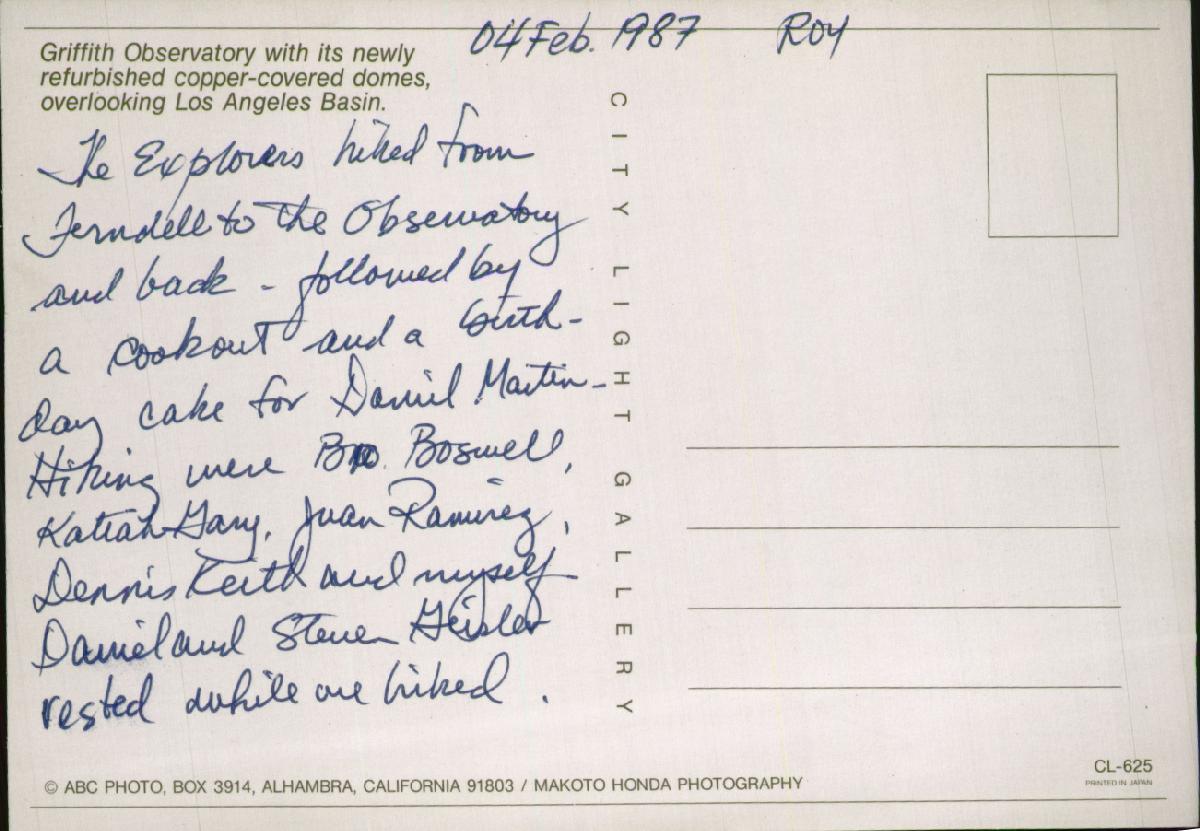 04 Feb. 1987 Roy
Griffith Observatory with its newly
refurbished copper-covered domes,
overlooking Los Angeles Basin.
The Explorers hiked from
Ferndell to the Observatory
and back - followed by
a cookout and a birth-
day cake for Daniel Martin-
Hiking were Bro. Boswell,
Katiah Gary, Juan Ramirez,
Dennis Keith and myself
Daniel and Steven Geisler
rested while we hiked.
CITY LIGHT GALLERY
CL-625
PRINTED IN JAPAN
© ABC PHOTO, BOX 3914, ALHAMBRA, CALIFORNIA 91803 / MAKOTO HONDA PHOTOGRAPHY